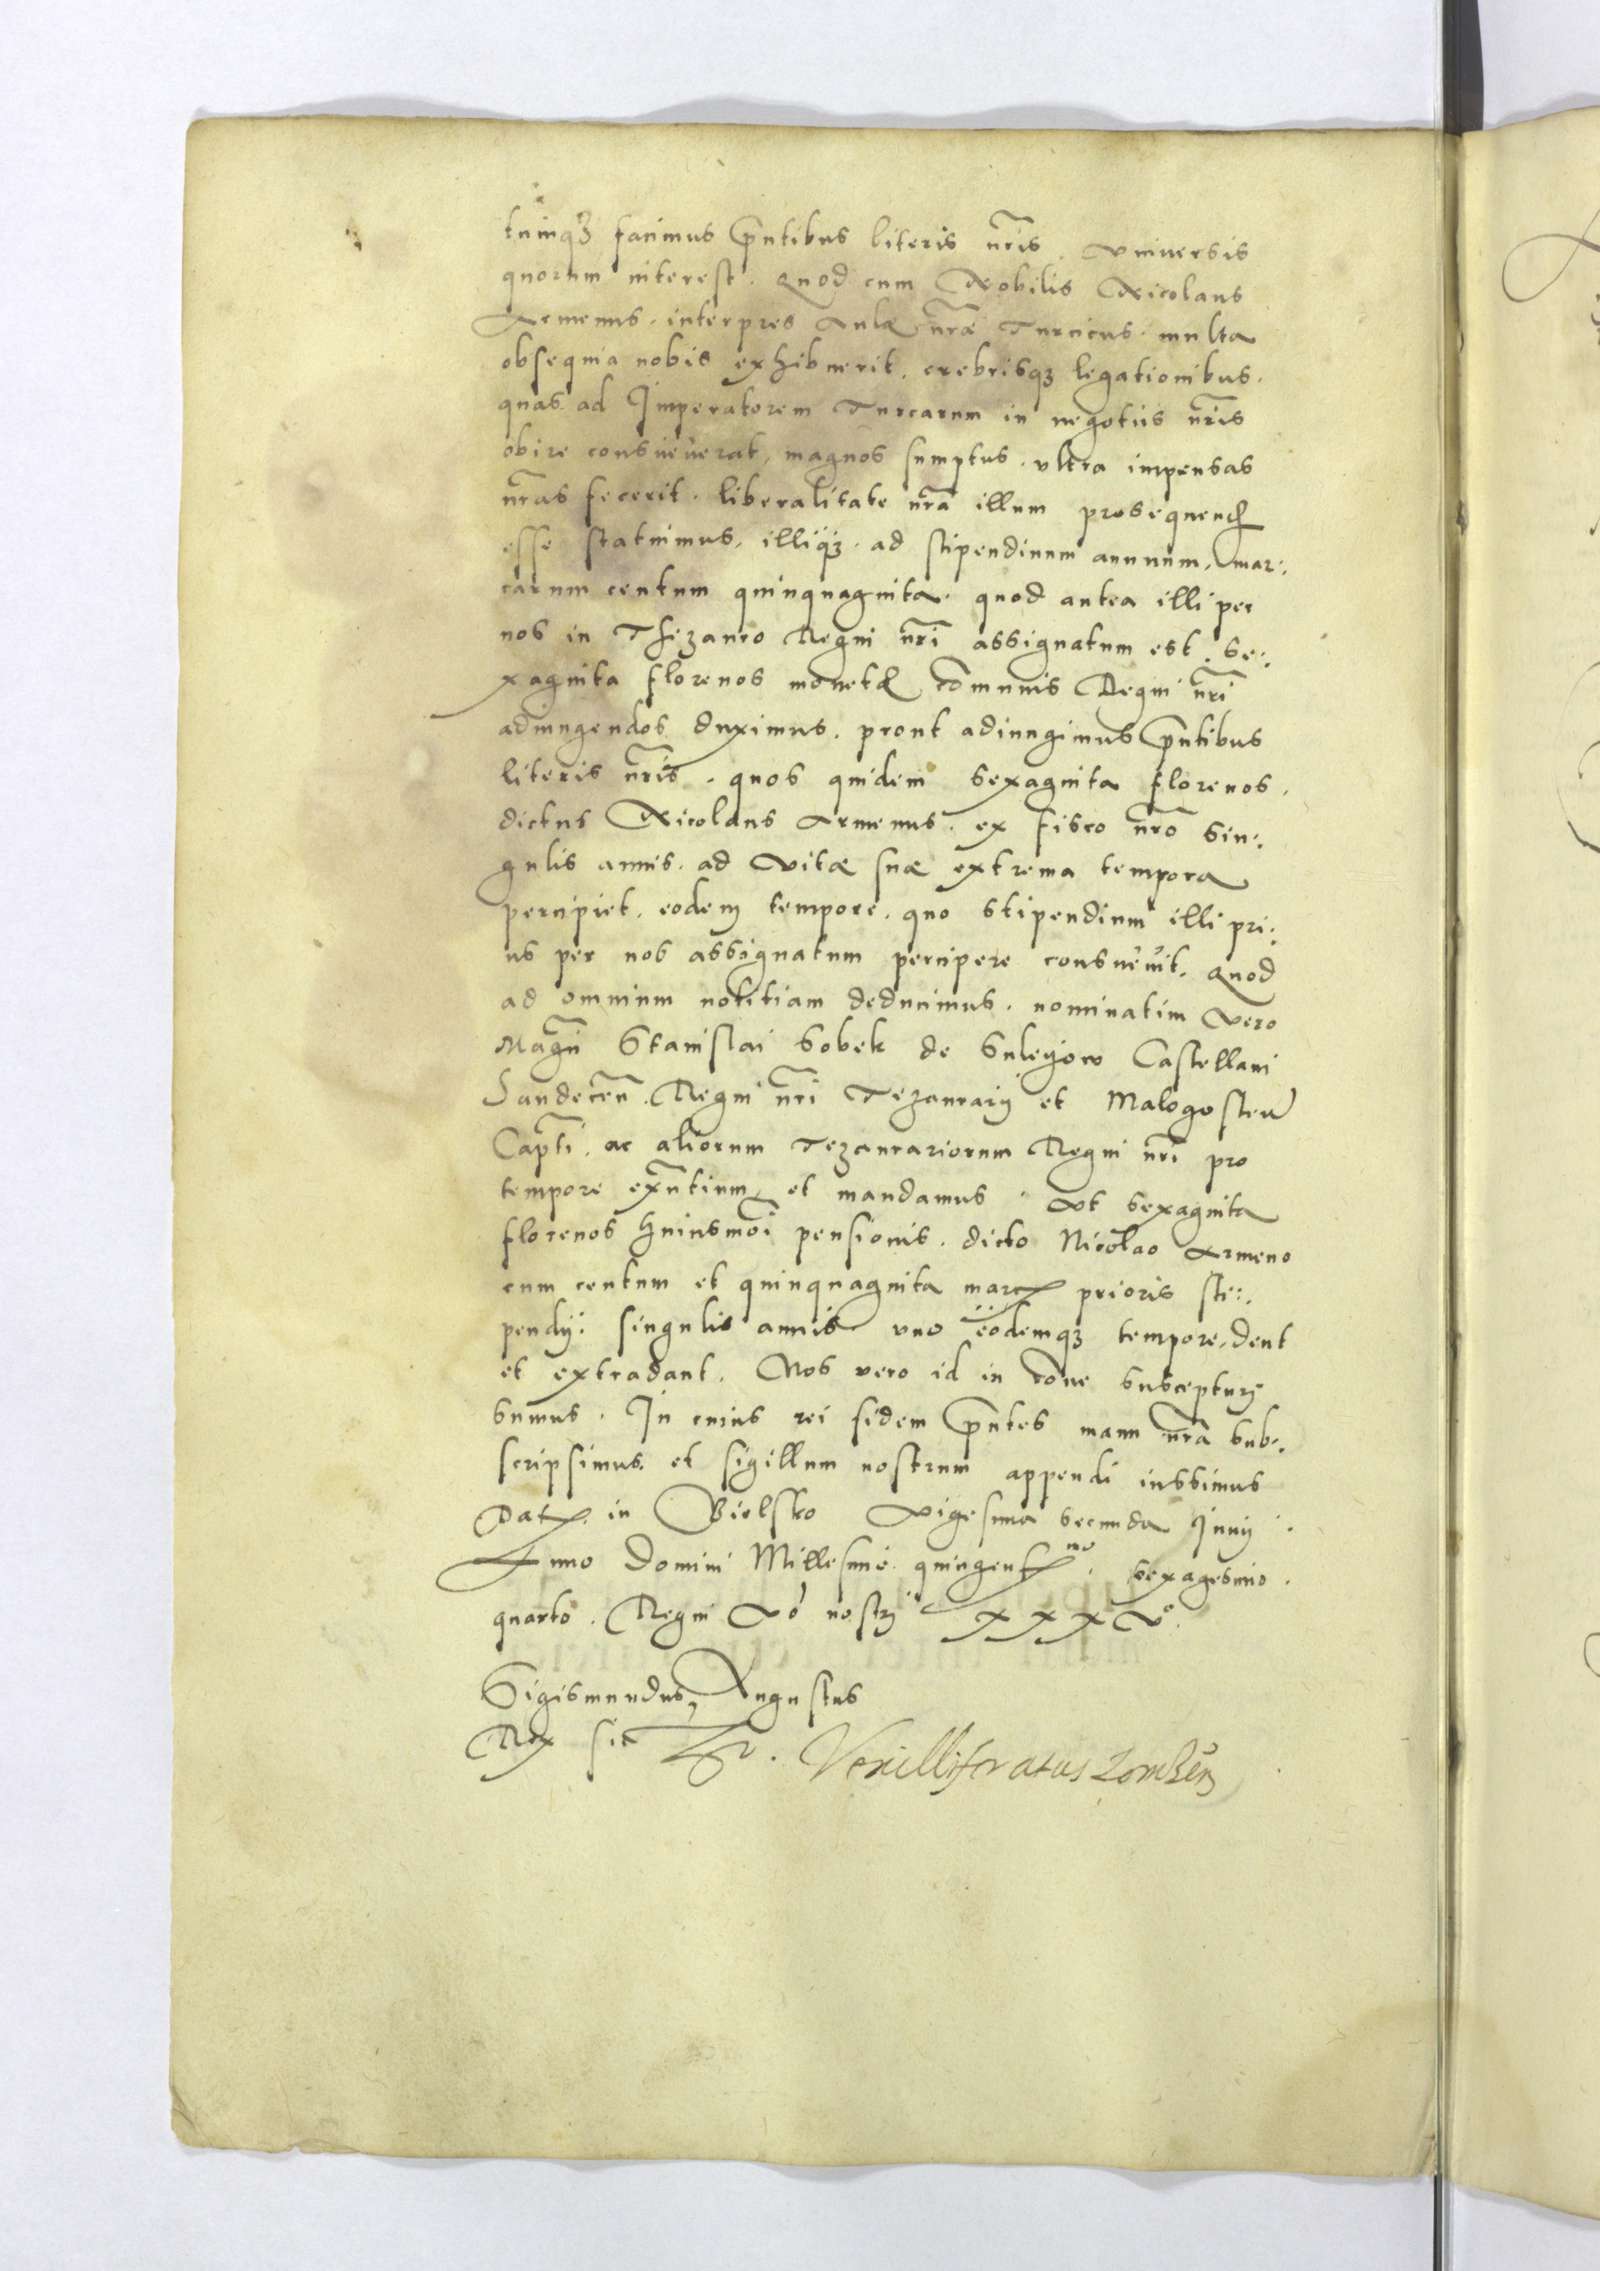 tumq3 facimus p̄ntibus literis nr̄is. Vniuersis
quorum interest. Quod cum Nobilis Nicolaus
Armenus. interpres Aulæ nr̄æ Turcicus. multa
obsequia nobis exhibuerit. crebrisq3 legationibus.
quas ad Imperatorem Turcarum in negotiis nr̄is
obire consueuerat, magnos sumptus. vltra impensas
nr̄as fecerit. liberalitate nr̄a illum prosequend
esse statuimus. illiq3. ad stipendium annuum, mar:
carum centum quinquaginta. quod antea illi per
nos in Thezauro Regni nr̄i assignatum est, se:
xaginta florenos monetę com̄unis Regni nr̄i
adiungendos duximus. prout adiungimus p̄ntibus
literis nr̄is. quos quidem sexaginta florenos.
dictus Nicolaus Armenus. ex fisco nr̄o sin:
gulis annis. ad Vitæ suæ extrema tempora
percipiet. eodem tempore. quo stipendium illi pri:
us per nos assignatum percipere consueuit. Quod
ad omnium notitiam deducimus. nominatim Vero
Mag̅ci Stanislai Sobek de Suleyow Castellani
Sandecen̄. Regni nr̄i Tezaurarij et Malogosten
Capt̄i. ac aliorum Tezaurariorum Regni nr̄i pro
tempore exn̄tium, et mandamus. Vt sexaginta
florenos huiusmōi pensionis. dicto Nicolao Armeno
cum centum et quinquaginta marcꝝ prioris sti:
pendij: singulis annis vno eodemq3 tempore, dent
et extradant. Nos vero id in rōne suscepturi
sumus. In cuius rei fidem p̄ntes manu nr̄a sub:
scripsimus. et sigillum nostrum appendi iussimus
Datꝝ. in Bielsko Vigesima secunda Junij.
Anno Domini Millesimo. quingenꝝmo. sexagesimo.
quarto. Regni Vo nostri XXXVo.
Sigismundus, Augustus
Rex sst
Vexilliferatus Lomzen